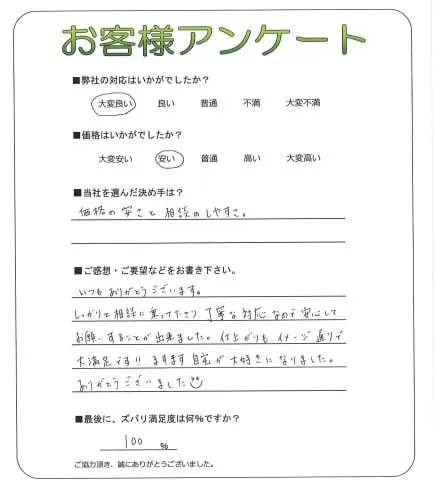 お客様アンケート
■弊社の対応はいかがでしたか？
大変良い 良い 普通 不満 大変不満
■価格はいかがでしたか？
大変安い 安い 普通 高い 大変高い
■当社を選んだ決め手は？
価格の安さと相談のしやすさ。
■ご感想・ご要望などをお書き下さい。
いつもありがとうございます。
しっかりと相談に乗って下さり、丁寧な対応なので安心して
お願いすることが出来ました。仕上がりもイメージ通りで
大満足です!! ますます自宅が大好きになりました。
ありがとうございました
■最後に、ズバリ満足度は何%ですか？
100 %
ご協力頂き、誠にありがとうございました。